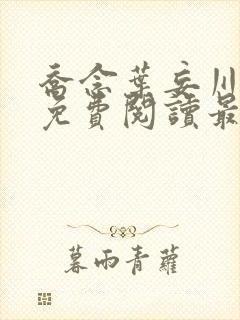 喬念葉妄川
免費閱讀最
暮雨青蘿